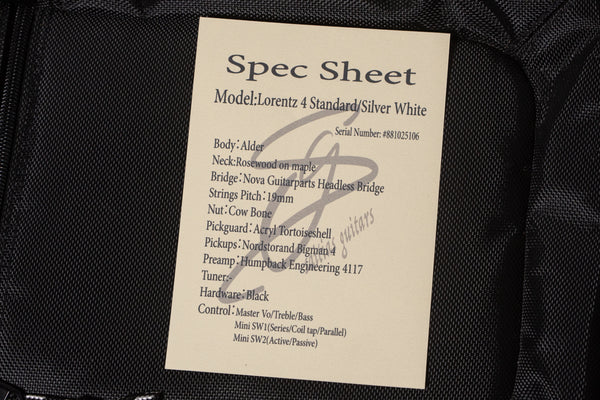 Spec Sheet
Model:Lorentz 4 Standard/Silver White
Serial Number: #881025106
Body:Alder
Neck:Rosewood on maple
Bridge:Nova Guitarparts Headless Bridge
Strings Pitch:19mm
Nut:Cow Bone
Pickguard:Acryl Tortoiseshell
Pickups:Nordstorand Bigman 4
Preamp:Humpback Engineering 4117
Tuner:-
Hardware:Black
Control:Master Vo/Treble/Bass
Mini SW1(Series/Coil tap/Parallel)
Mini SW2(Active/Passive)
guitars